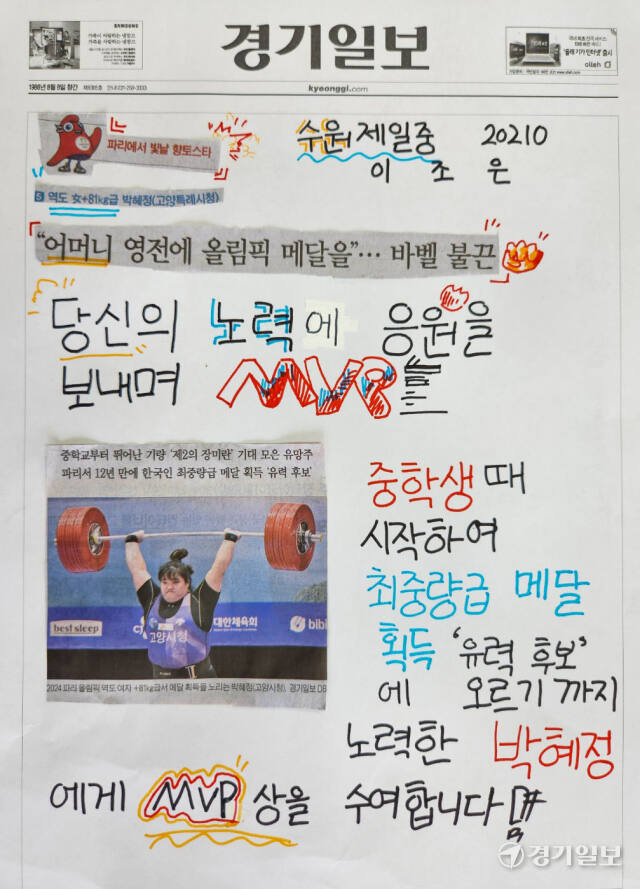 SAMSUNG
경기일보
olleh
1988년 8월 8일 창간
kyeonggi.com
파리에서 빛날 향토스타
수원제일중 20210
이 조 은
역도 女+81kg급 박혜정(고양특례시청)
“어머니 영전에 올림픽 메달을”… 바벨 불끈
당신의 노력에 응원을
보내며 MVP를
중학교부터 뛰어난 기량 ‘제2의 장미란’ 기대 모은 유망주
파리서 12년 만에 한국인 최중량급 메달 획득 ‘유력 후보’
best sleep
고양시청
대한체육회
bibi
2024 파리 올림픽 역도 여자 +81kg급서 메달 획득을 노리는 박혜정(고양시청). 경기일보 DB
중학생 때
시작하여
최중량급 메달
획득 ‘유력 후보’
에 오르기 까지
노력한 박혜정
에게 MVP 상을 수여합니다
경기일보